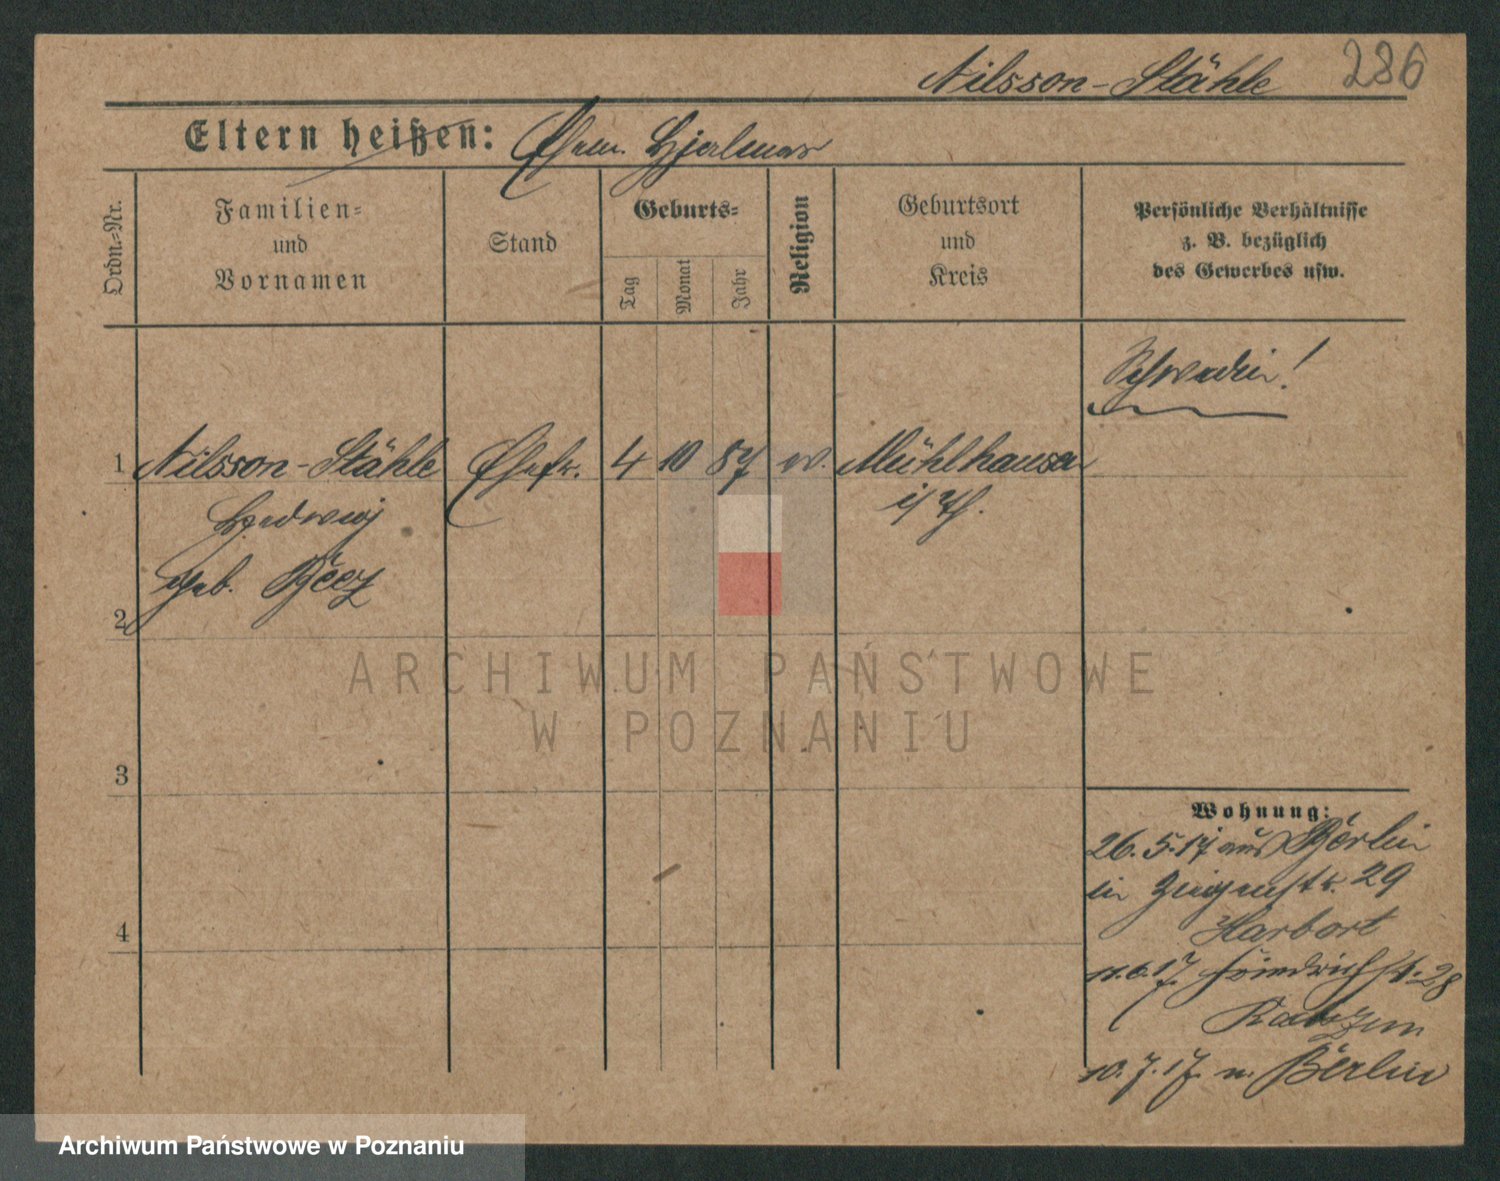 Nilsson-Stähle
286
Eltern heißen: Ehem. Hjalmar
Ordn.-Nr.
Familien-
und
Vornamen
Stand
Geburts-
Tag
Monat
Jahr
Religion
Geburtsort
und
Kreis
Persönliche Verhältnisse
z. B. bezüglich
des Gewerbes usw.
Schwedin!
1 Nilsson-Stähle Ehefr. 4 10 87 ev. Mühlhausen
Hedwig i/Th.
geb.
2
3
4
Wohnung:
26.5.17 aus Berlin
in 29
Harbort
11.6.17. Friedrichstr. 28
10.7.17. n. Berlin
ARCHIWUM PAŃSTWOWE
W POZNANIU
Archiwum Państwowe w Poznaniu